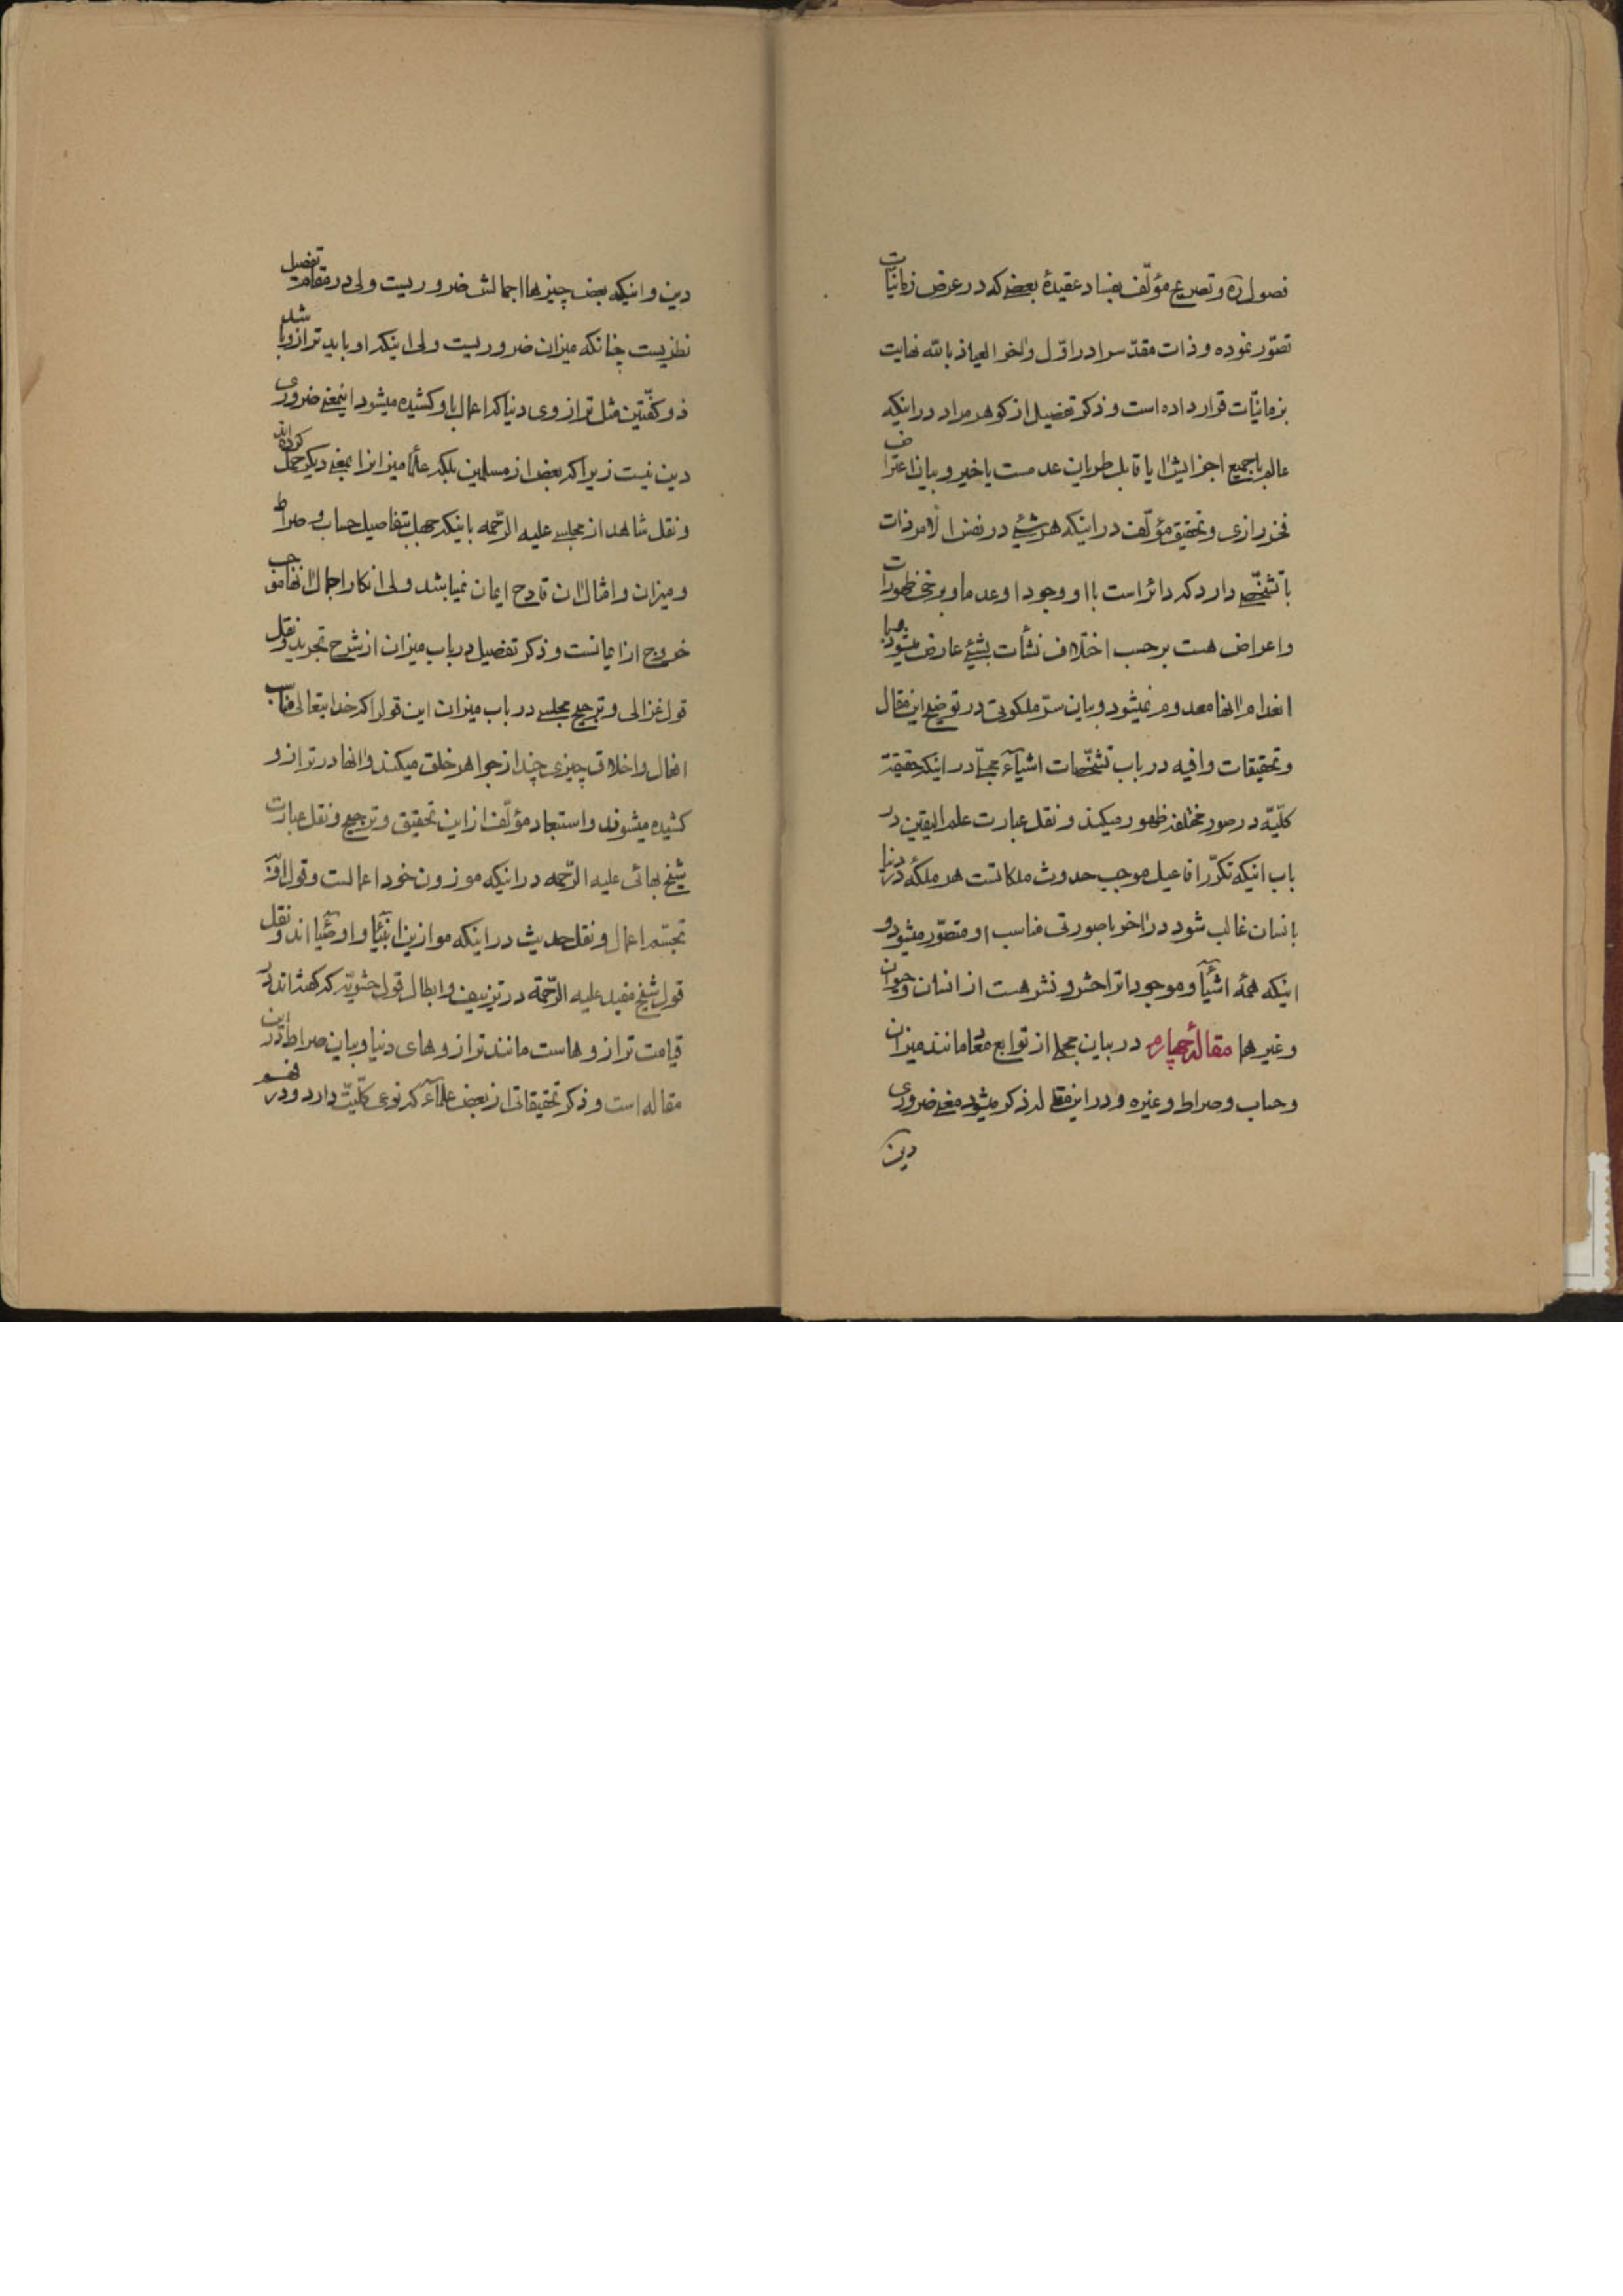 فصول ره و تصریح مؤلّف بفساد عقیدهٔ بعضی که در عرض زمانیات
تصوّر نموده و ذات مقدّسرا در اوّل و اخر العیاذ بالله نهایت
بزمانیّات قرار داده است و ذکر تفضیل از کوهر مراد در اینکه
عالم باجمیع اجزایش ایا قابل طریان عدمست یا خیر و بیان اعتراض
فخر رازی و تحقیق مؤلّف در اینکه هر شیئ در نفس الامر ذات
با تشخّصی دارد که دائر است با او وجودا و عدما و برخی ظهورات
و اعراض هست برحسب اختلاف نشأت بشیئ عارض میشود که با
انعدام انها معدوم نمیشود و بیان سرّ ملکوتی در توضیح این مقال
و تحقیقات وافیه در باب تشخّصات اشیآء مجملاً در اینکه حقیقة
کلیّه در صور مختلفه ظهور میکند و نقل عبارت علم الیقین در
باب اینکه تکرّر افاعیل موجب حدوث ملکاتست هر ملکهٔ در دنیا
بانسان غالب شود در اخرة بصورتی مناسب او متصوّر میشود و
اینکه همهٔ اشیآء و موجودات را حشر و نشر هست از انسان و حیوان
و غیر هما مقالهٔ چهارم در بیان مجملی از توابع معاد مانند میزان
و حساب و صراط و غیره و در این مقاله ذکر میشود معنی ضروری
دین
دین و اینکه بعض چیزها اجمالش ضروریست ولی در مقام تفصیل
نظریست چنانکه میزان ضروریست ولی اینکه او باید ترازو باشد
ذو کفّتین مثل ترازوی دنیا که اعمال با او کشیده میشود اینمعنی ضروری
دین نیست زیرا که بعض از مسلمین بلکه علما میزانرا بمعنی دیکر حمل کرده‌اند
و نقل شاهد از مجلسی علیه الرّحمه باینکه جهل بتفاصیل حساب و صراط
و میزان و امثال ان قادح ایمان نمیباشد ولی انکار اجمال انها موجب
خروج از ایمانست و ذکر تفضیل در باب میزان از شرح تجرید و نقل
قول غزالی و ترجیح مجلسی در باب میزان این قول را که خدایتعالی مناسب
افعال و اخلاق چیزی چند از جواهر خلق میکند و انها در ترازو
کشیده میشوند و استبعاد مؤلّف از این تحقیق و ترجیح و نقل عبارت
شیخ بهائی علیه الرّحمه در اینکه موزون خود اعمالست و قول او در
تجسّم اعمال و نقل حدیث در اینکه موازین انبیآء و اوصیآء اند و نقل
قول شیخ مفید علیه الرّحمة در تزییف و ابطال قول حشویّه که کفته‌اند در
قیامت ترازوهاست مانند ترازوهای دنیا و بیان صراط در این
مقاله است و ذکر تحقیقاتی از بعض علمآء که نوعی کلّیّت دارد و در فهم